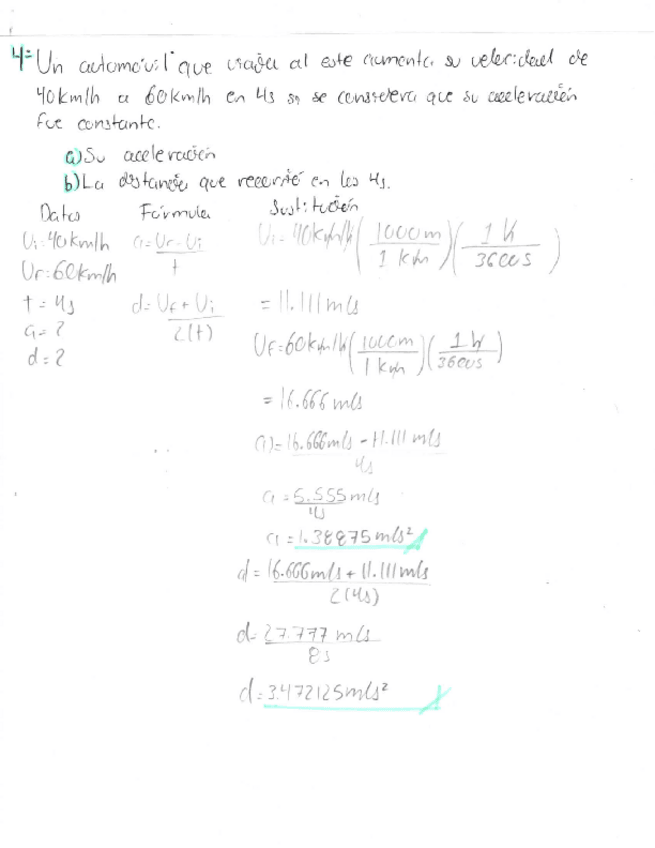 4= Un automóvil que viaja al este aumenta su velocidad de
40km/h a 60km/h en 4s si se considera que su aceleración
fue constante.
a) Su aceleración
b) La distancia que recorrió en los 4s.
Datos Fórmula Sustitución
Vi=40km/h a=Vf-Vi/t Vi=40km/h(1000m/1km)(1h/3600s)
Vf=60km/h
t=4s d=Vf+Vi/2(t) =11.111m/s
a=?
d=? Vf=60km/h(1000m/1km)(1h/3600s)
=16.666m/s
a)=16.666m/s-11.111m/s/4s
a=5.555m/s/4s
a=1.38875m/s²
d=16.666m/s+11.111m/s/2(4s)
d=27.777m/s/8s
d=3.472125m/s²